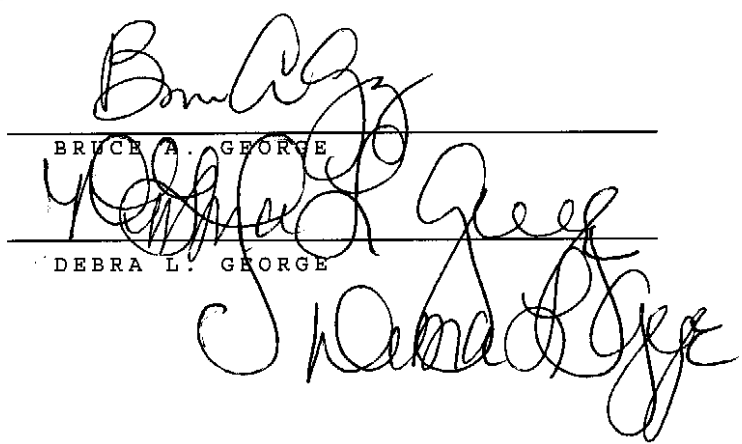 Bruce A. George
BRUCE A. GEORGE
Debra L. George
DEBRA L. GEORGE
Debra L George